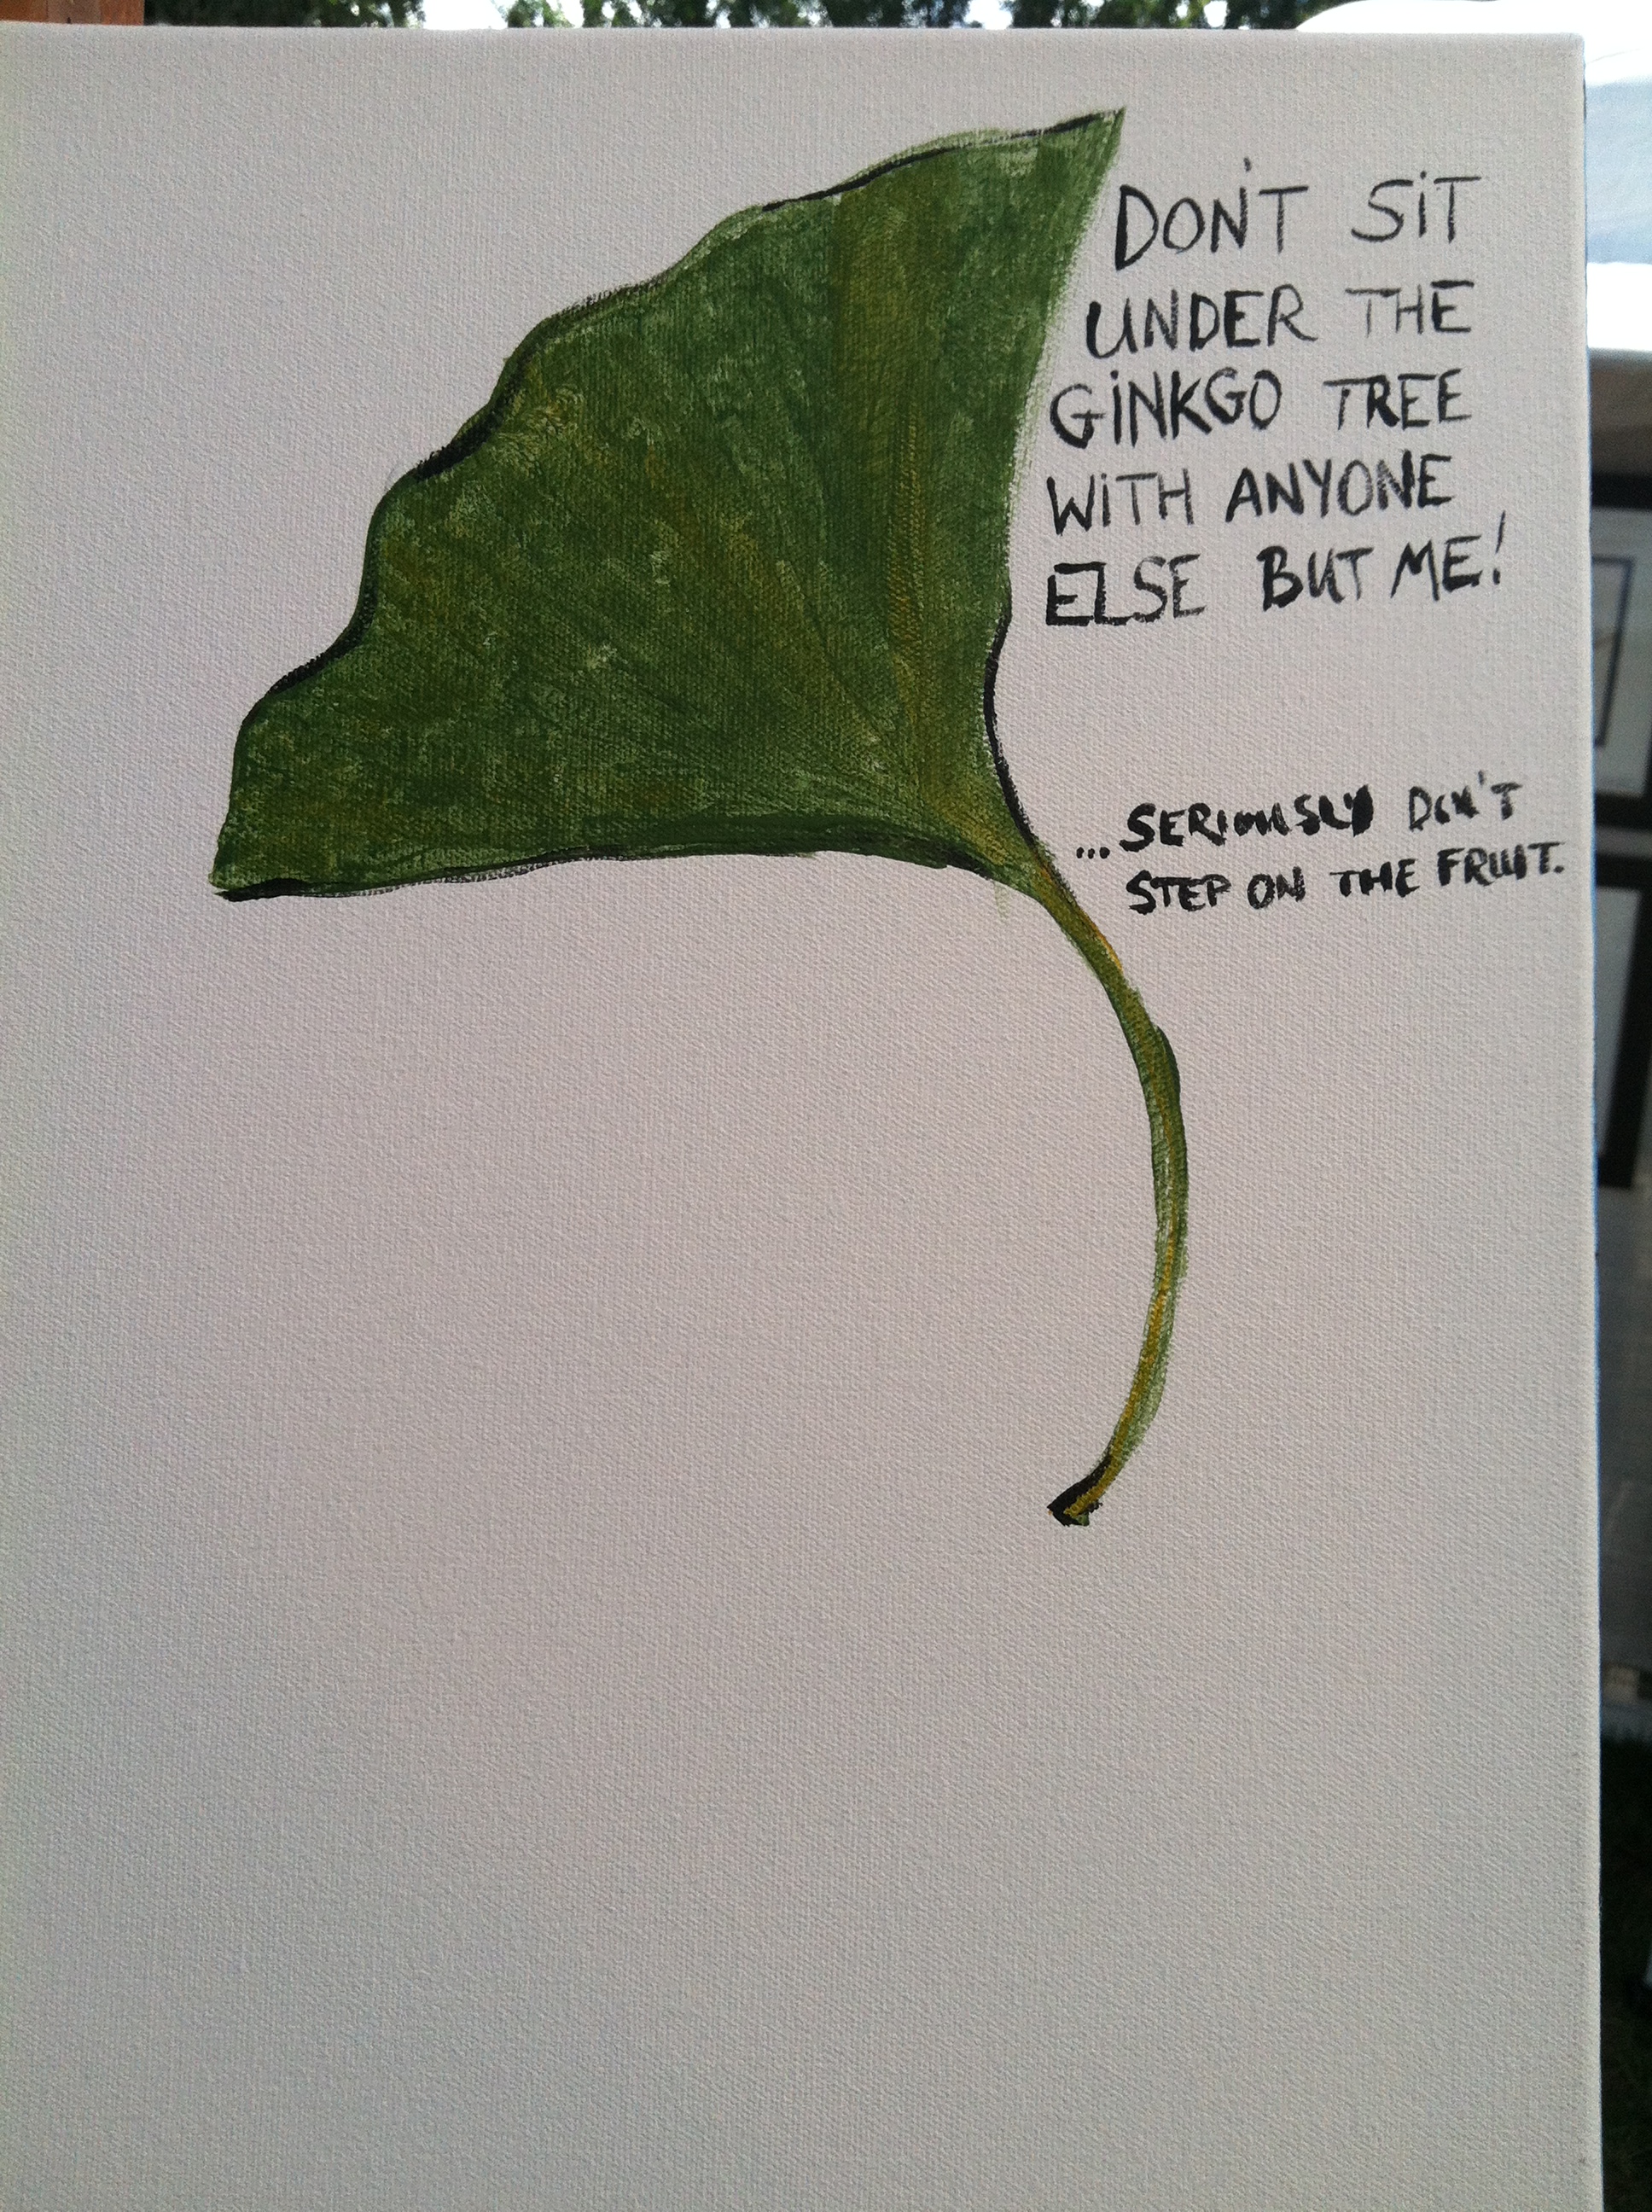 DON'T SiT
UNDER THE
GiNKGO TREE
WiTH ANYONE
ELSE BUT ME!
...SERIOUSLY DON'T
STEP ON THE FRUIT.